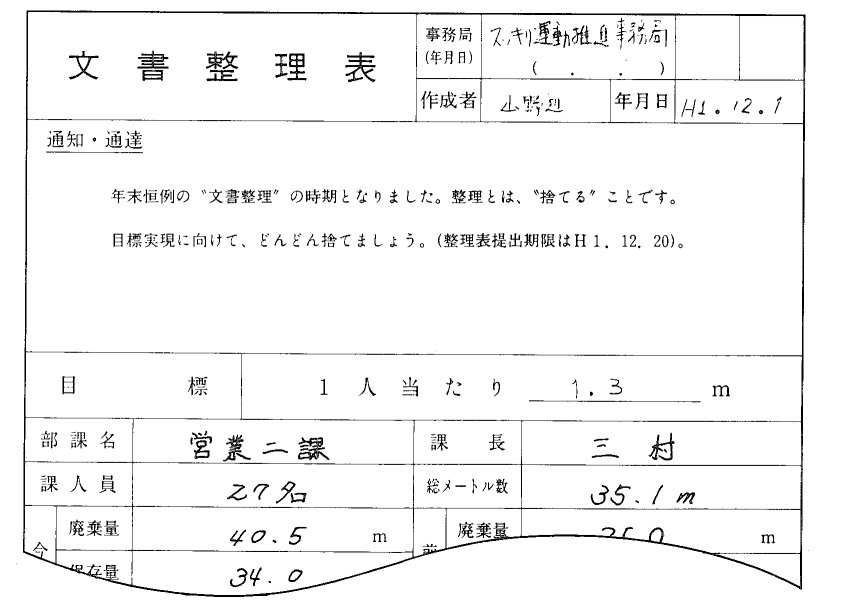 文書整理表
事務局 スッキリ運動推進事務局
(年月日) ( . . )
作成者 山野辺 年月日 H1.12.1
通知・通達
年末恒例の〝文書整理〞の時期となりました。整理とは、〝捨てる〞ことです。
目標実現に向けて、どんどん捨てましょう。(整理表提出期限はH1. 12. 20)。
目標 1人当たり 1.3 m
部課名 営業二課 課長 三村
課人員 27名 総メートル数 35.1m
今 廃棄量 40.5 m 廃棄量 m
保存量 34.0